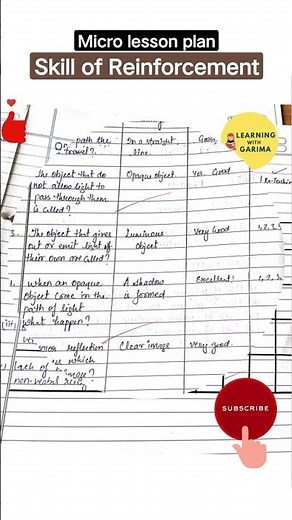 Micro lesson plan
Skill of Reinforcement
LEARNING
WITH
GARIMA
path the In a straight
travel? line.
The object that do Opaque object Yes Good
not allow light to
pass through them
is called?
3. The object that gives Luminous Very Good 1, 2, 3,
out or emit light of object
their own are called?
When an opaque A shadow Excellent! 1, 2,
Object come in the is formed
path of light
(iii) what happen?
reflection Clear image Very good.
lack of which
image?
non-verbal
SUBSCRIBE